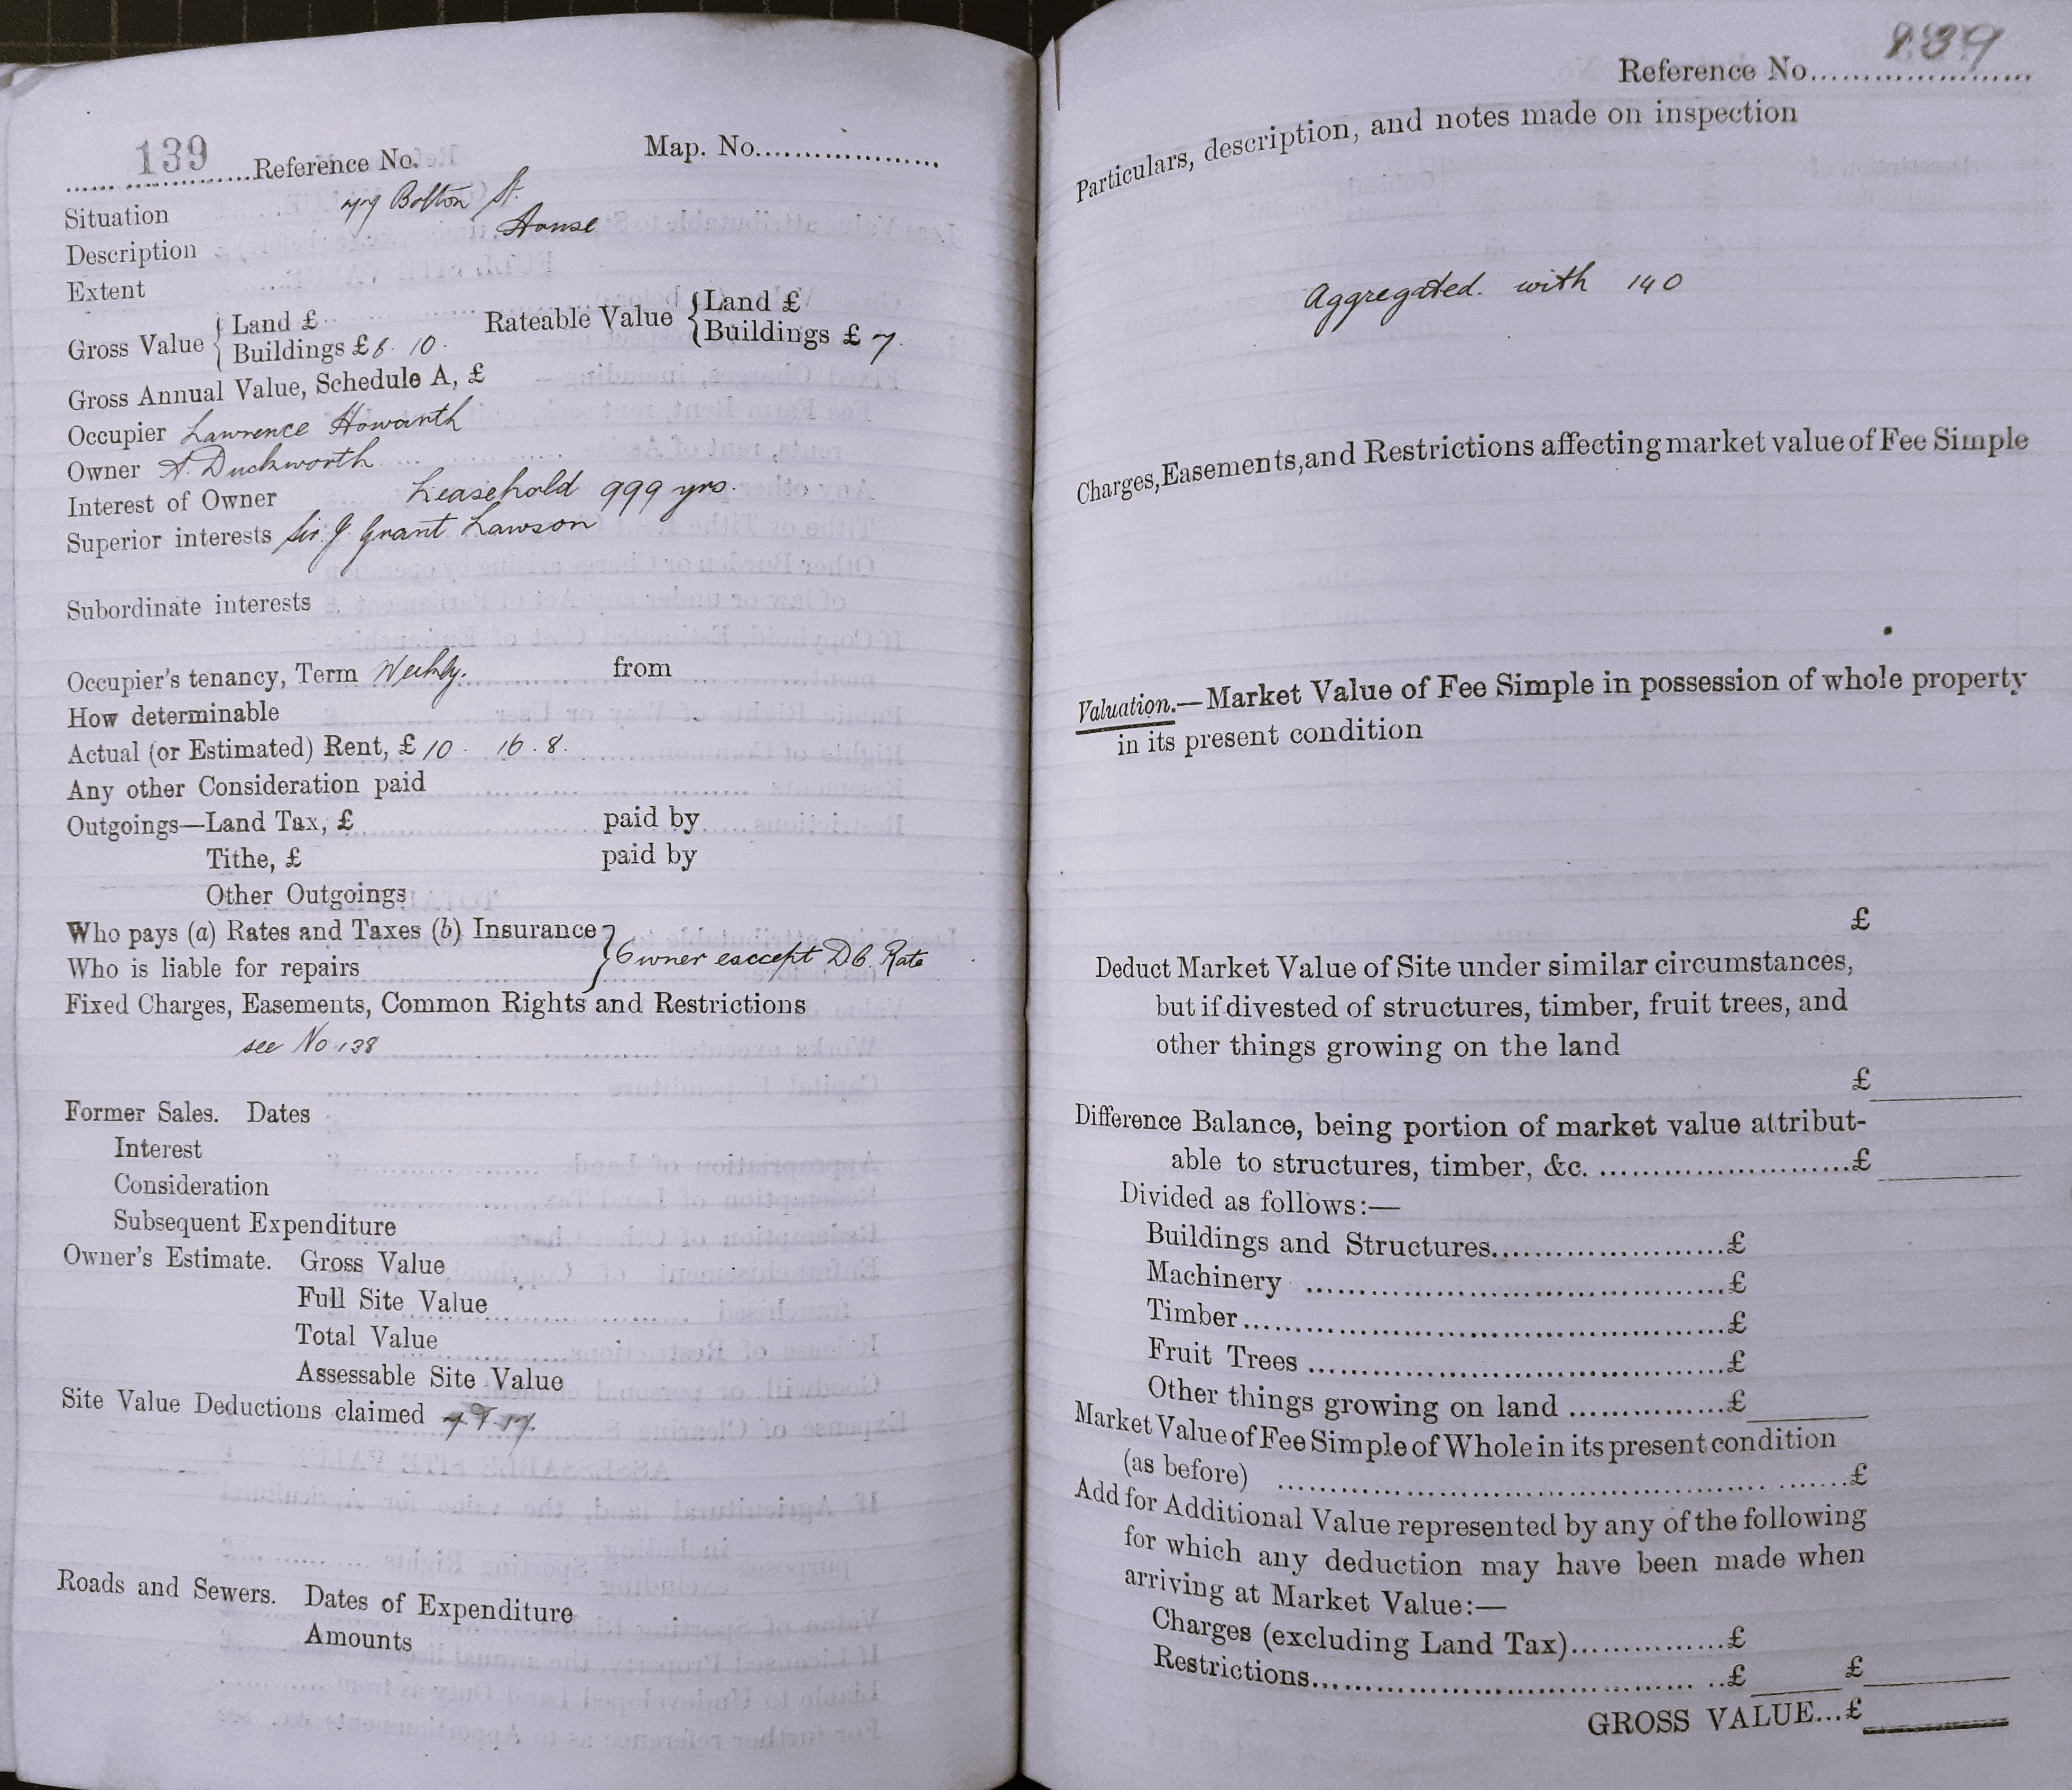 139 Reference No. Map. No.
Situation Bolton St.
Description House
Extent
Gross Value { Land £ Rateable Value { Land £
Buildings £8. 10. Buildings £ 7.
Gross Annual Value, Schedule A, £
Occupier Lawrence Howarth
Owner A. Duckworth
Interest of Owner Leasehold 999 yrs.
Superior interests Sir. J. Grant Lawson
Subordinate interests
Occupier's tenancy, Term Weekly. from
How determinable
Actual (or Estimated) Rent, £ 10. 16. 8.
Any other Consideration paid
Outgoings—Land Tax, £ paid by
Tithe, £ paid by
Other Outgoings
Who pays (a) Rates and Taxes (b) Insurance
Who is liable for repairs } Owner except Rate
Fixed Charges, Easements, Common Rights and Restrictions
see No 138
Former Sales. Dates
Interest
Consideration
Subsequent Expenditure
Owner's Estimate. Gross Value
Full Site Value
Total Value
Assessable Site Value
Site Value Deductions claimed
Roads and Sewers. Dates of Expenditure
Amounts
Reference No. 139
Particulars, description, and notes made on inspection
Aggregated. with 140
Charges, Easements, and Restrictions affecting market value of Fee Simple
Valuation.—Market Value of Fee Simple in possession of whole property
in its present condition
£
Deduct Market Value of Site under similar circumstances,
but if divested of structures, timber, fruit trees, and
other things growing on the land
£
Difference Balance, being portion of market value attribut-
able to structures, timber, &c. £
Divided as follows:—
Buildings and Structures £
Machinery £
Timber £
Fruit Trees £
Other things growing on land £
Market Value of Fee Simple of Whole in its present condition
(as before) £
Add for Additional Value represented by any of the following
for which any deduction may have been made when
arriving at Market Value:—
Charges (excluding Land Tax) £
Restrictions £ £
GROSS VALUE...£